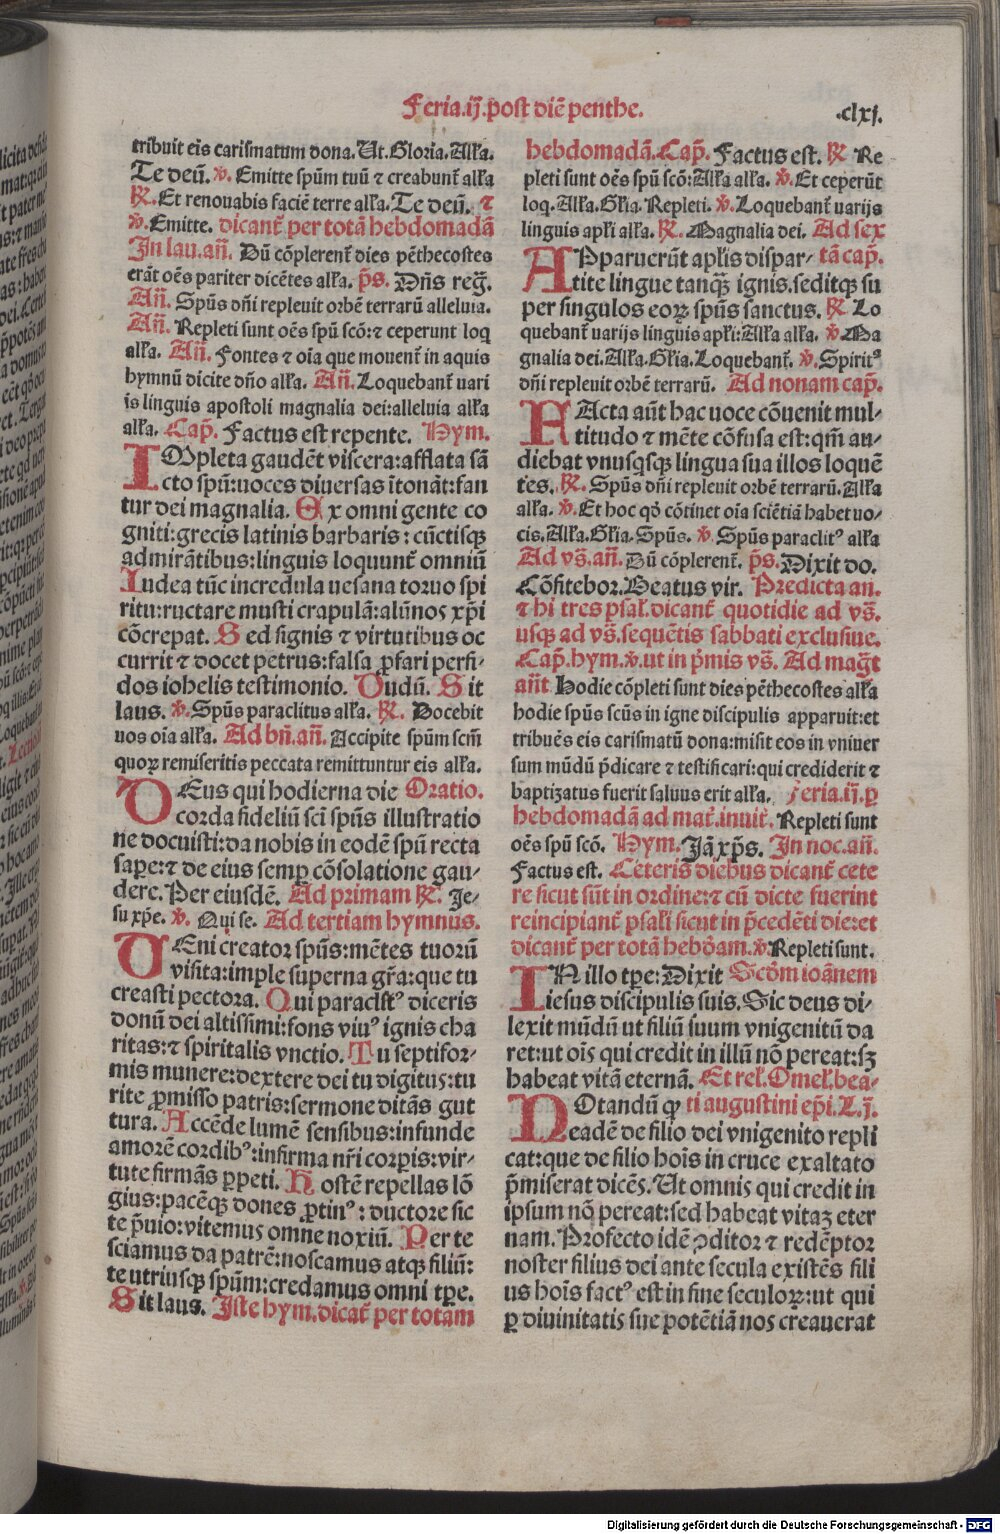 Feria.ij.post diē penthe.
.clxj.
tribuit eis carismatum dona. Ut. Gloria. Alľa.
Te deū. ℣. Emitte spūm tuū ⁊ creabunt̄ alľa
℟. Et renouabis faciē terre alľa. Te deū. ⁊
℣. Emitte. dicant̄ per totā hebdomadā
In lau. añ. Dū cōplerent̄ dies pēthecostes
erāt oēs pariter dicētes alľa. p̄s. Dn̄s reg̃.
Añ. Spūs dn̄i repleuit orbē terrarū alleluia.
Añ. Repleti sunt oēs spū scō:⁊ ceperunt loq
alľa. Añ. Fontes ⁊ oīa que mouent̄ in aquis
hymnū dicite dn̄o alľa. Añ. Loquebant̄ uari
is linguis apostoli magnalia dei:alleluia alľa
alľa. Cap̄. Factus est repente. Hym.
IMpleta gaudēt viscera:afflata sā
cto spū:uoces diuersas ītonāt:fan
tur dei magnalia. Ex omni gente co
gniti:grecis latinis barbaris: cūctisqꝫ
admirātibus:linguis loquunt̄ omniū
Iudea tūc incredula uesana toruo spi
ritu:ructare musti crapulā:alūnos xp̄i
cōcrepat. Sed signis ⁊ virtutibus oc
currit ⁊ docet petrus:falsa ꝓfari perfi-
dos iohelis testimonio. Dudū. Sit
laus. ℣. Spūs paraclitus alľa. ℟. Docebit
uos oīa alľa. Ad bn̄. añ. Accipite spūm scm̄
quoꝝ remiseritis peccata remittuntur eis alľa.
DEus qui hodierna die Oratio.
corda fideliū sci spūs illustratio
ne docuisti:da nobis in eodē spū recta
sape:⁊ de eius semꝑ cōsolatione gau-
dere. Per eiusdē. Ad primam ℟. Je-
su xp̄e. ℣. Qui se. Ad tertiam hymnus.
VEni creator spūs:mētes tuorū
visita:imple superna gr̄a:que tu
creasti pectora. Qui paraclitꝰ diceris
donū dei altissimi:fons viuꝰ ignis cha
ritas:⁊ spiritalis vnctio. Tu septifor-
mis munere:dextere dei tu digitus:tu
rite ꝓmisso patris:sermone ditās gut
tura. Accēde lumē sensibus:infunde
amorē cordibꝰ:infirma nr̄i corꝑis:vir-
tute firmās ꝑpeti. Hostē repellas lō
gius:pacēqꝫ dones ꝓtinꝰ: ductore sic
te p̄uio:vitemus omne noxiū. Per te
sciamus da patrē:noscamus atqꝫ filiū:
te utriusqꝫ spūm:credamus omni tp̄e.
Sit laus. Iste hym. dicāt̄ per totam
hebdomadā. Cap̄. Factus est. ℟ Re
pleti sunt oēs spū scō:Alľa alľa. ℣. Et ceperūt
loq. Alľa. Gľia. Repleti. ℣. Loquebant̄ uarijs
linguis apľi alľa. ℟. Magnalia dei. Ad sex
APparuerūt apľis dispar- tā cap̄.
tite lingue tanqꝫ ignis.seditqꝫ su
per singulos eoꝝ spūs sanctus. ℟ Lo
quebant̄ uarijs linguis apľi:Alľa alľa. ℣. Ma
gnalia dei. Alľa. Gľia. Loquebant̄. ℣. Spiritꝰ
dn̄i repleuit orbē terrarū. Ad nonam cap̄.
FActa aūt hac uoce cōuenit mul-
titudo ⁊ mēte cōfusa est:qm̄ au-
diebat vnusqsqꝫ lingua sua illos loquē
tes. ℟. Spūs dn̄i repleuit orbē terrarū. Alľa
alľa. ℣. Et hoc qď cōtinet oīa sciētiā habet uo-
cis. Alľa. Gľia. Spūs. ℣. Spūs paraclitꝰ alľa
Ad vs̄. añ. Dū cōplerent̄. p̄s. Dixit do.
Cōfitebor. Beatus vir. Predicta an.
⁊ hi tres psaľ. dicant̄ quotidie ad vs̄.
usqꝫ ad vs̄.sequētis sabbati exclusiue.
Cap̄. hym. ℣. ut in p̄mis vs̄. Ad mag̃t
añt Hodie cōpleti sunt dies pēthecostes alľa
hodie spūs scūs in igne discipulis apparuit:et
tribuēs eis carismatū dona:misit eos in vniuer
sum mūdū p̄dicare ⁊ testificari:qui crediderit ⁊
baptizatus fuerit saluus erit alľa. Feria.ij. ꝑ
hebdomadā ad mat̄. inuit̄. Repleti sunt
oēs spū scō. Hym. Jā xp̄s. In noc. añ.
Factus est. Ceteris diebus dicant̄ cete
re sicut sūt in ordine:⁊ cū dicte fuerint
reincipiant̄ psaľi sicut in p̄cedēti die:et
dicant̄ per totā hebďam. ℣. Repleti sunt.
IN illo tp̄e: Dixit Scďm ioānem
iesus discipulis suis. Sic deus di-
lexit mūdū ut filiū suum vnigenitū da
ret:ut oīs qui credit in illū nō pereat:sꝫ
habeat vitā eternā. Et reľ. Omeľ. bea-
NOtandū ꝙ ti augustini ep̄i. L.j.
eadē de filio dei vnigenito repli
cat:que de filio hoīs in cruce exaltato
p̄miserat dicēs. Ut omnis qui credit in
ipsum nō pereat:sed habeat vitaꝫ eter
nam. Profecto idē ↄditor ⁊ redēptor
noster filius dei ante secula existēs fili
us hoīs factꝰ est in fine seculoꝝ:ut qui
ꝑ diuinitatis sue potētiā nos creauerat
Digitalisierung gefördert durch die Deutsche Forschungsgemeinschaft - DFG